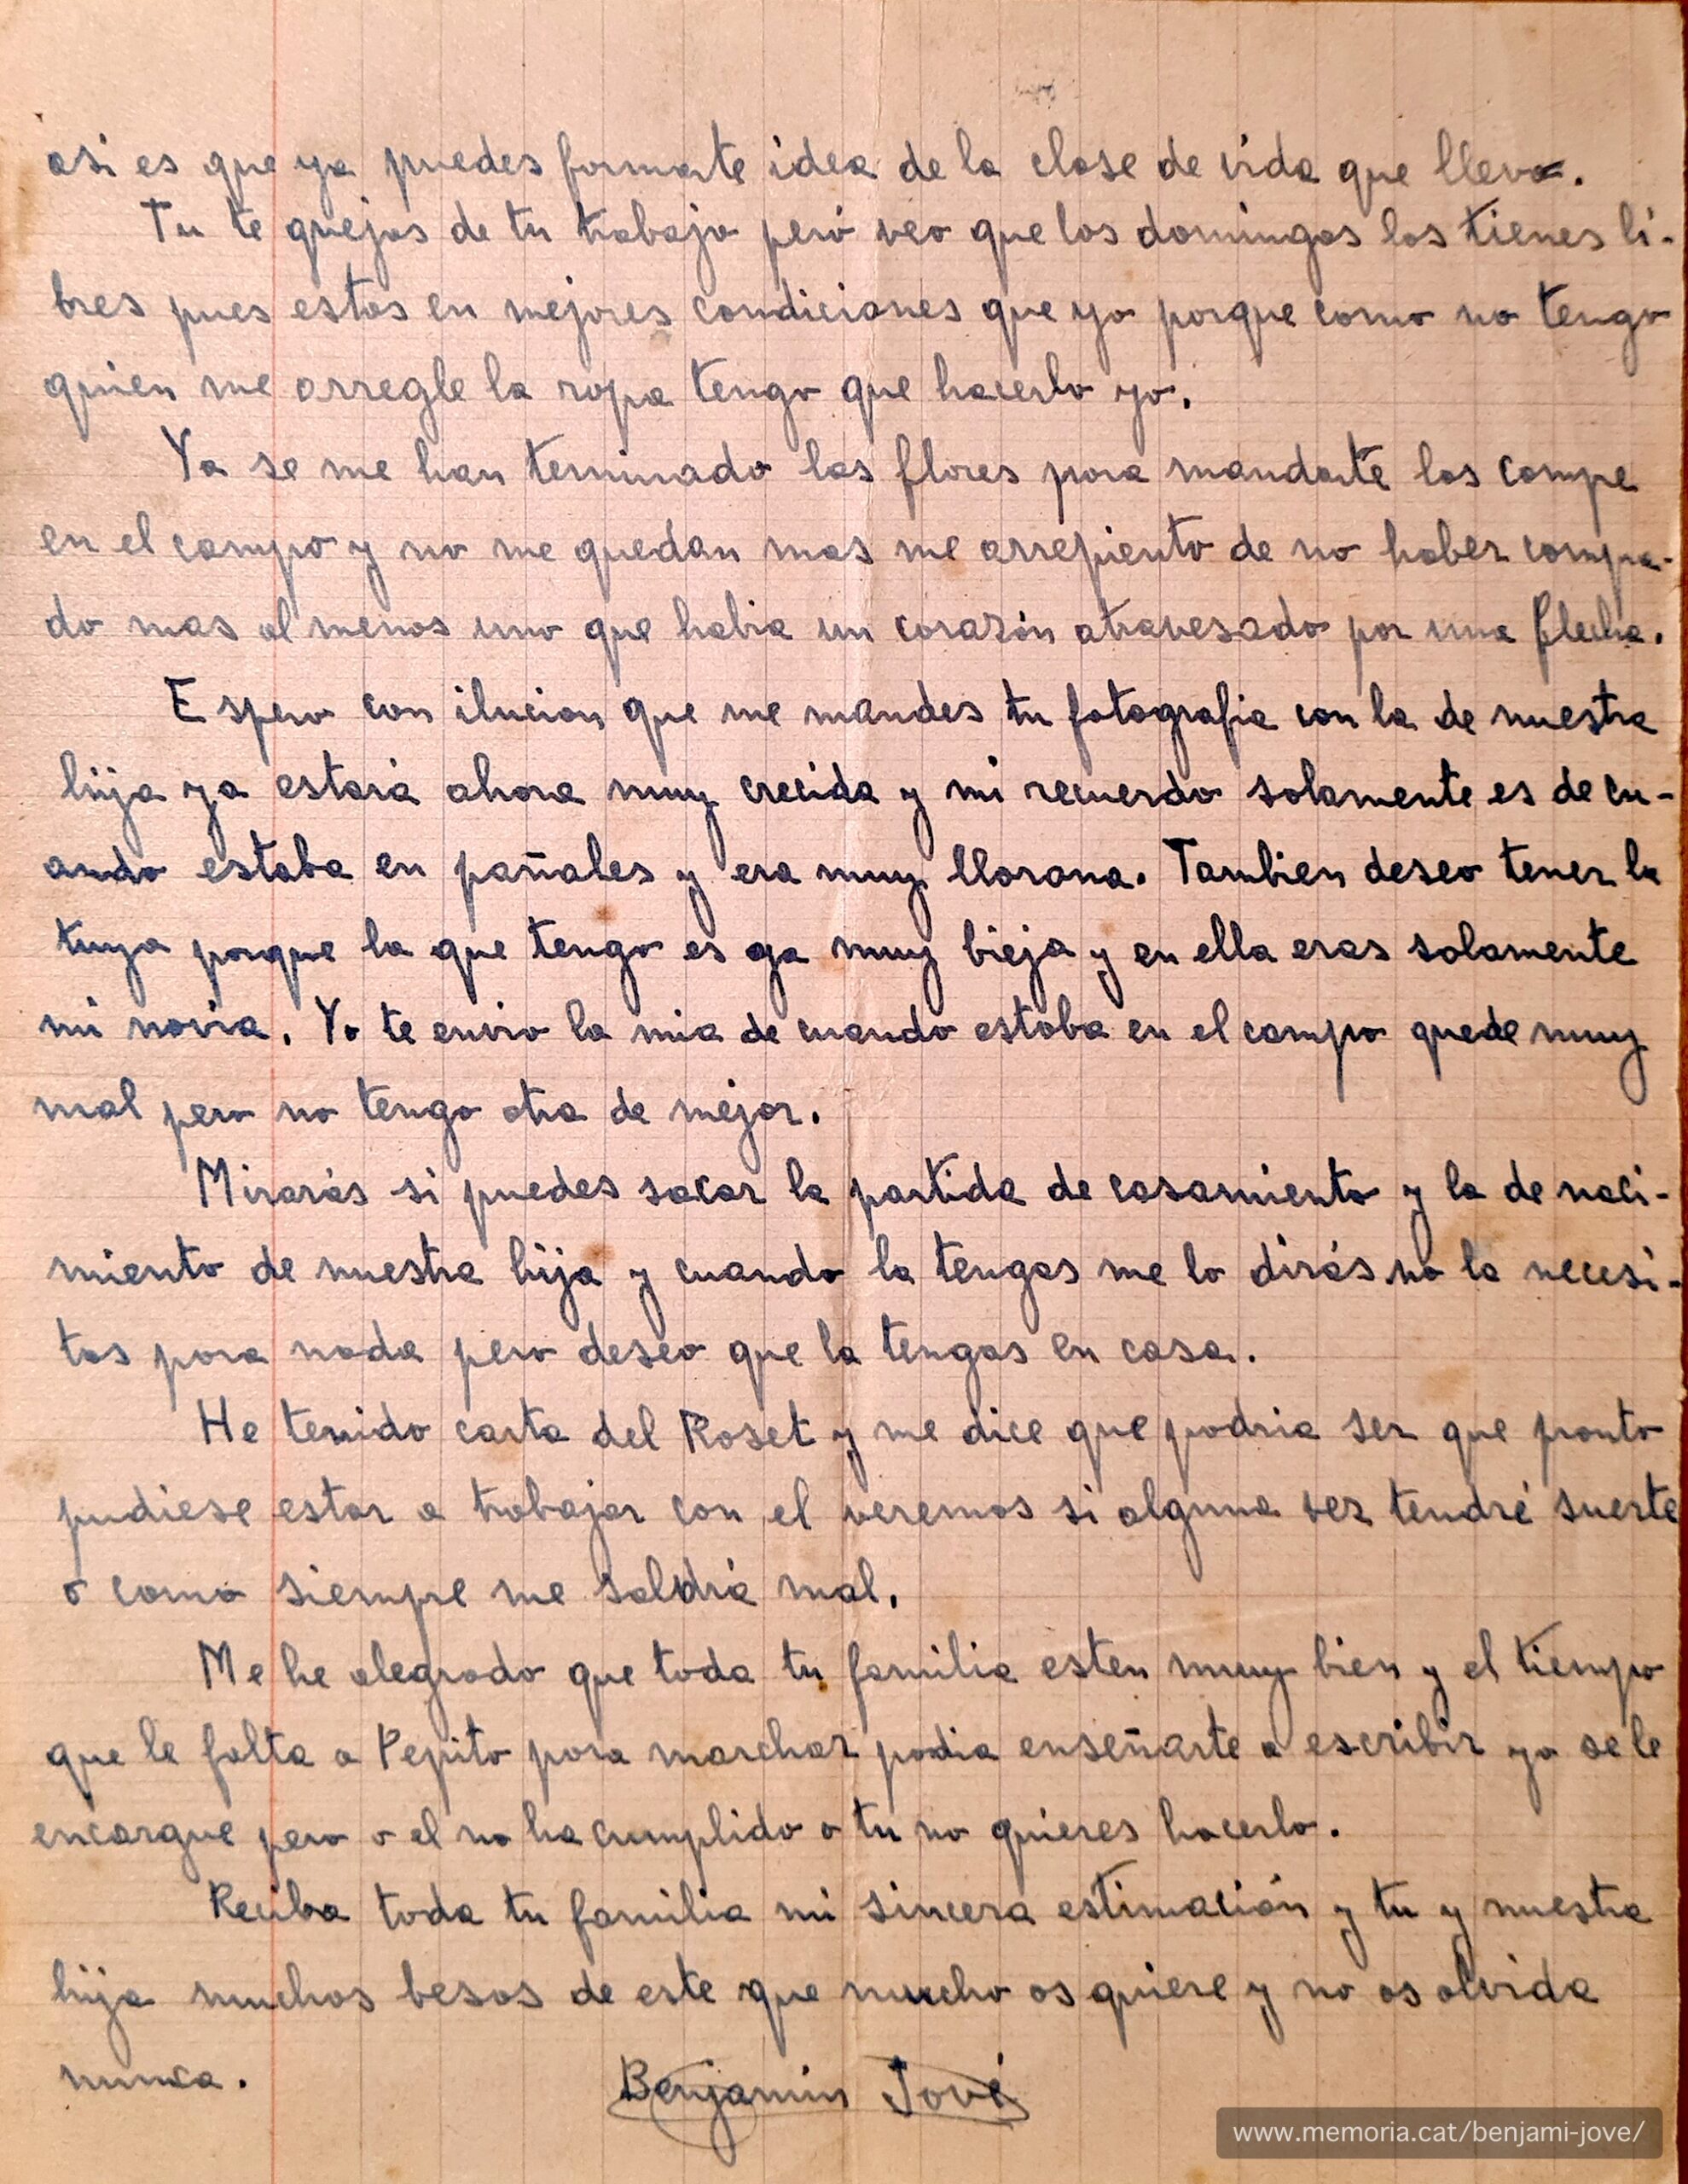 asi es que ya puedes formarte idea de la clase de vida que llevo.
Tu te quejas de tu trabajo peró veo que los domingos los tienes li-
bres pues estas en mejores condiciones que yo porque como no tengo
quien me arregle la ropa tengo que hacerlo yo.
Ya se me han terminado las flores para mandarte las compe
en el campo y no me quedan mas me arrepiento de no haber compa-
do mas al menos uno que habia un corazón atravesado por una flecha.
Espero con ilucion que me mandes tu fotografia con la de nuestra
hija ya estará ahora muy crecida y mi recuerdo solamente es de cu-
ando estaba en pañales y era muy llorona. Tambien deseo tener la
tuya porque la que tengo es ya muy bieja y en ella eras solamente
mi novia. Yo te envio la mia de cuando estaba en el campo quede muy
mal pero no tengo otra de mejor.
Mirarás si puedes sacar la partida de casamiento y la de naci-
miento de nuestra hija y cuando la tengas me lo dirás no la necesi-
tas para nada pero deseo que la tengas en casa.
He tenido carta del Roset y me dice que podria ser que pronto
pudiese estar a trabajar con el veremos si alguna vez tendré suerte
o como siempre me saldrá mal.
Me he alegrado que toda tu familia esten muy bien y el tiempo
que le falta a Pepito para marchar podia enseñarte a escribir ya se le
encargue pero o el no ha cumplido o tu no quieres hacerlo.
Reciba toda tu familia mi sincera estimación y tu y nuestra
hija muchos besos de este que mucho os quiere y no os olvida
nunca.
Benjamín Jové
www.memoria.cat/benjami-jove/